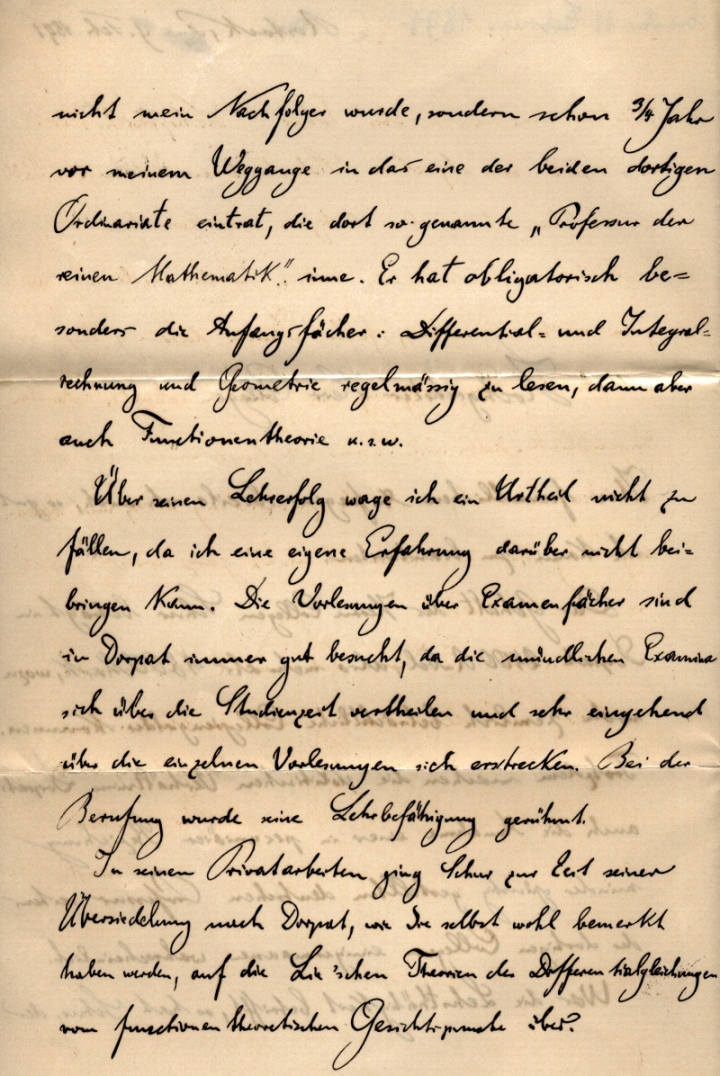 nicht mein Nachfolger wurde, sondern schon 3/4 Jahr
vor meinem Weggange in das eine der beiden dortigen
Ordinariate eintrat, die dort so genannte „Professur der
reinen Mathematik". inne. Er hat obligatorisch be=
sonders die Anfangsfächer: Differential= und Integral=
rechnung und Geometrie regelmässig zu lesen, dann aber
auch Functionentheorie u.s.w.
Über seinen Lehrerfolg wage ich ein Urtheil nicht zu
fällen, da ich eine eigene Erfahrung darüber nicht bei=
bringen kann. Die Vorlesungen über Examenfächer sind
in Dorpat immer gut besucht, da die mündlichen Examina
sich über die Studienzeit vertheilen und sehr eingehend
über die einzelnen Vorlesungen sich erstrecken. Bei der
Berufung wurde seine Lehrbefähigung gerühmt.
In seinen Privatarbeiten ging Schur zur Zeit seiner
Übersiedelung nach Dorpat, wie Sie selbst wohl bemerkt
haben werden, auf die Lie'schen Theorien der Differentialgleichungen
vom functionentheoretischen Gesichtspunkte über.